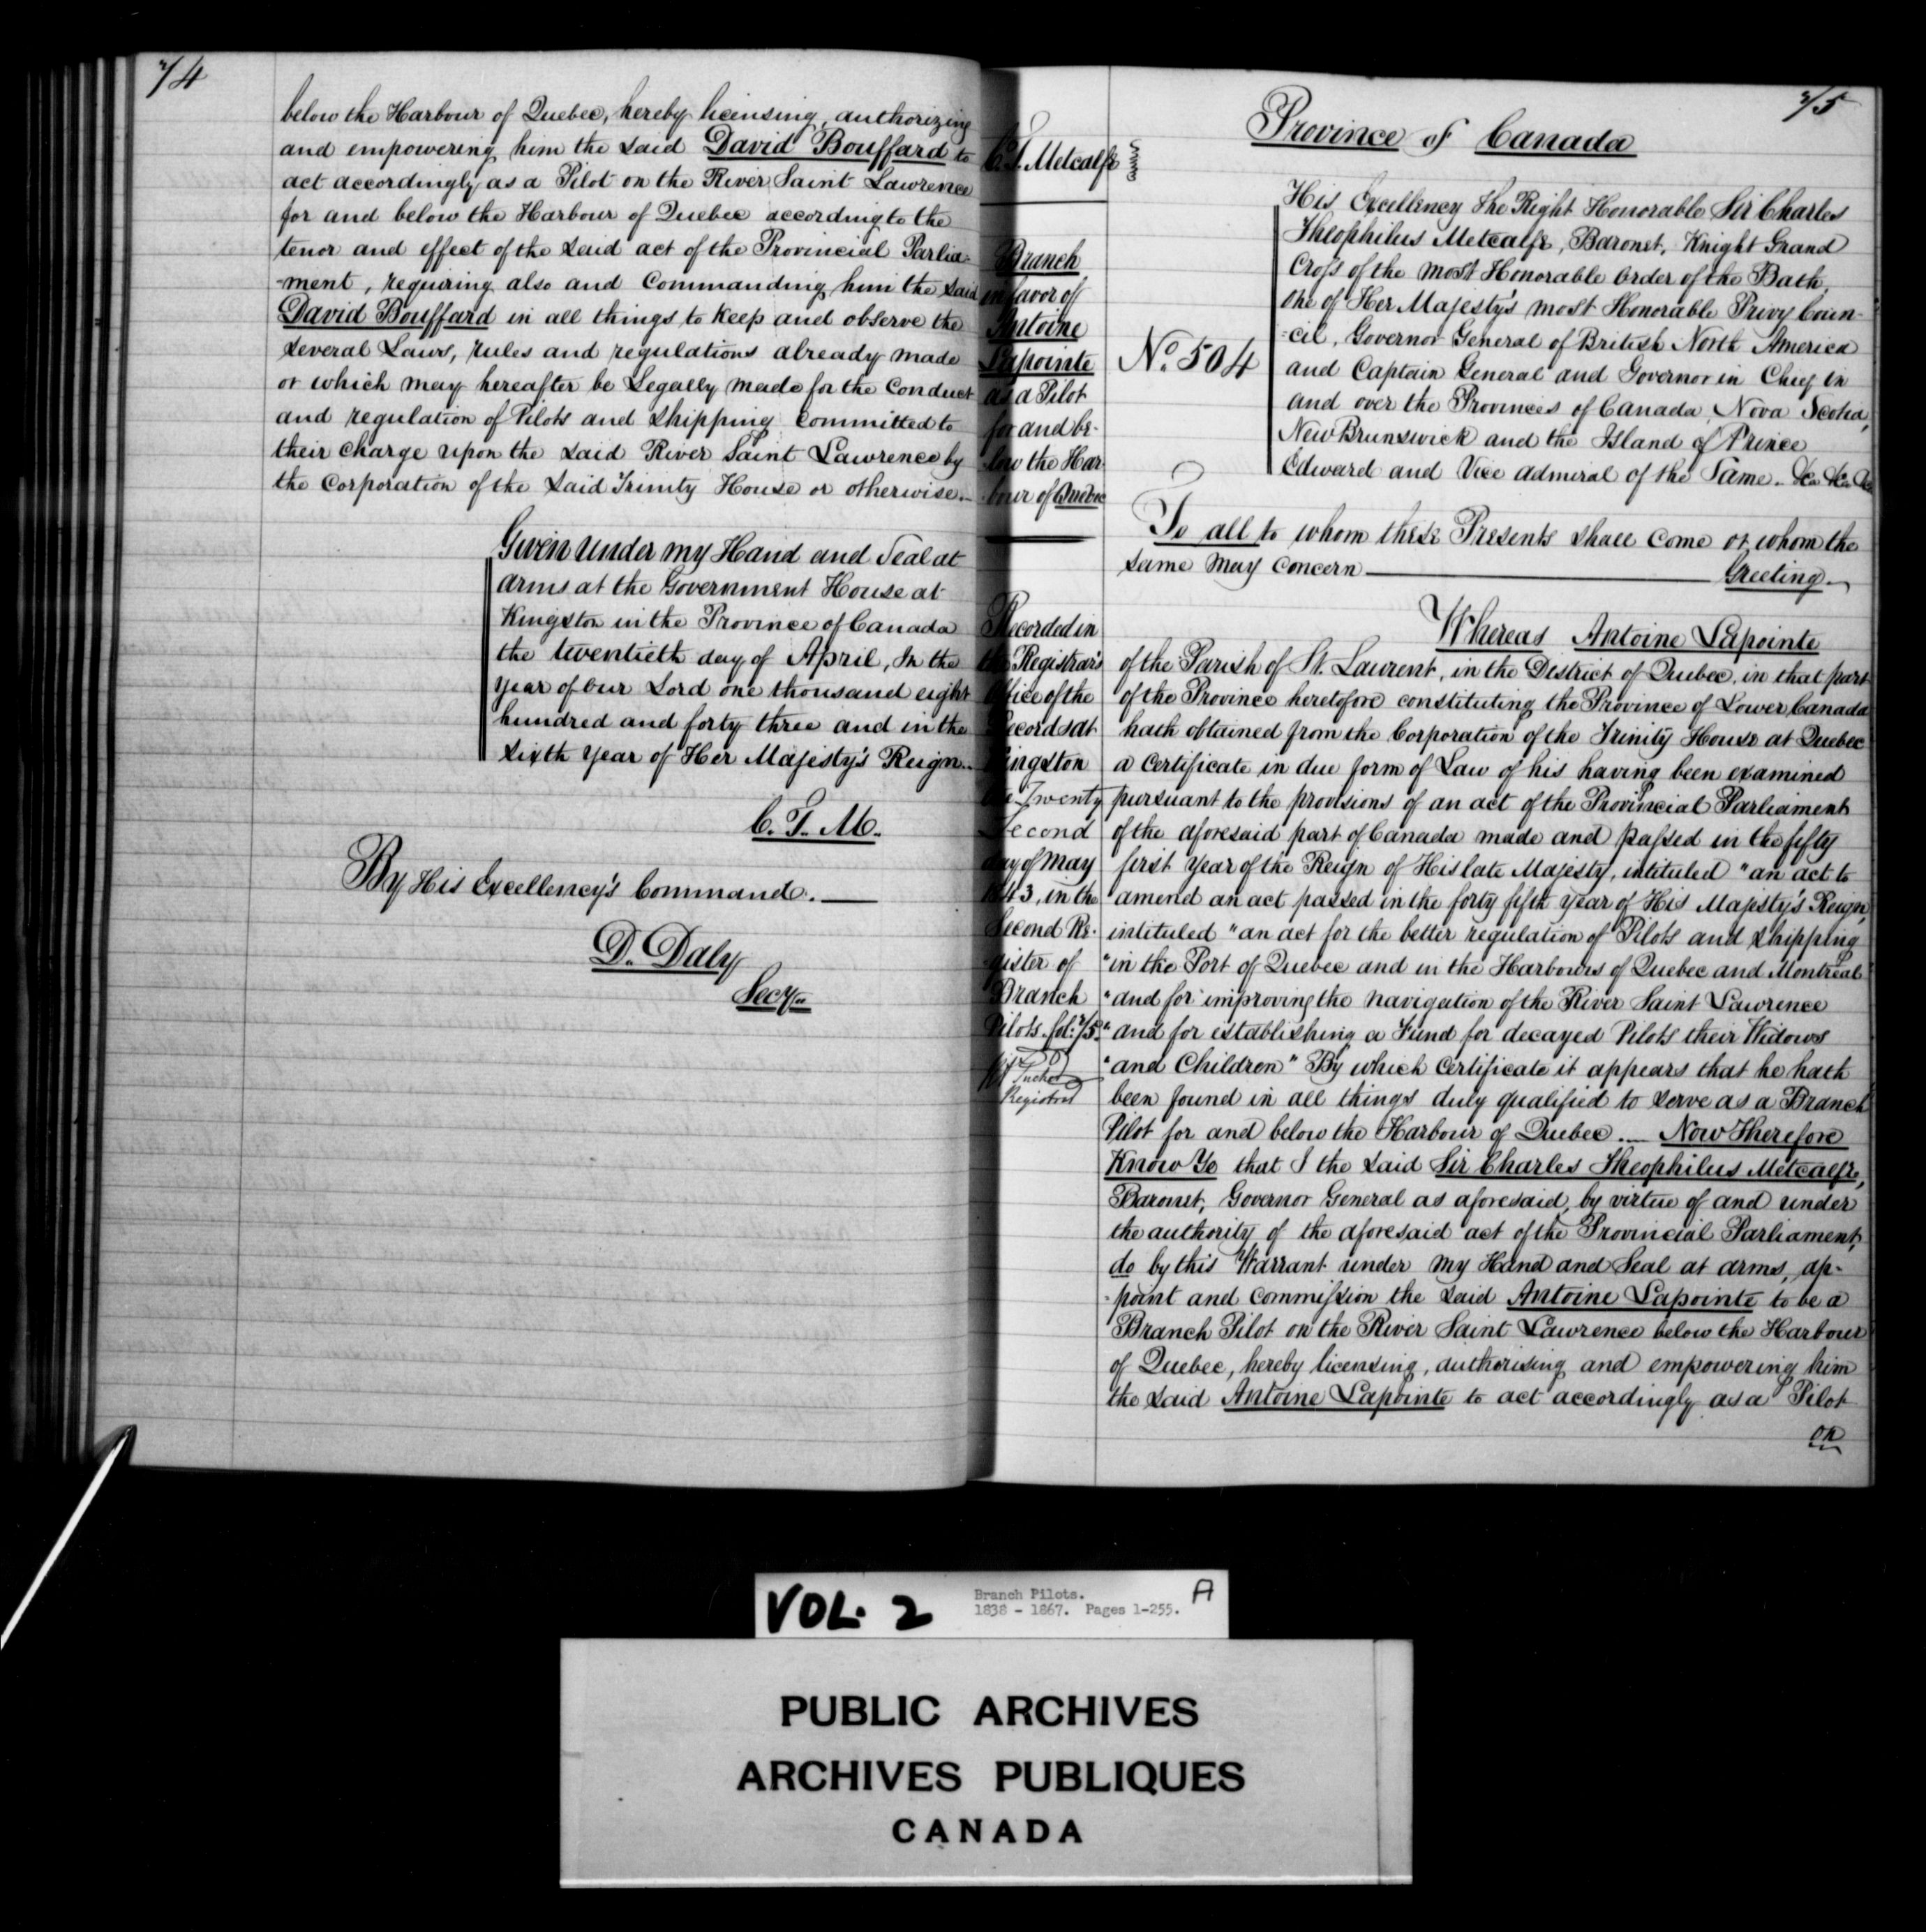 74
below the Harbour of Quebec, hereby licensing, authorizing
and empowering him the said David Bouffard to
act accordingly as a Pilot on the River Saint Lawrence
for and below the Harbour of Quebec according to the
tenor and effect of the said act of the Provincial Parlia-
-ment, requiring also and Commanding him the said
David Bouffard in all things to keep and observe the
several Laws, rules and regulations already made
or which may hereafter be Legally made for the Conduct
and regulation of Pilots and shipping committed to
their charge upon the said River Saint Lawrence by
the Corporation of the said Trinity House or otherwise.
Given under my Hand and Seal at
arms at the Government House at
Kingston in the Province of Canada
the twentieth day of April, In the
year of our Lord one thousand eight
hundred and forty three and in the
sixth year of Her Majesty's Reign.
C. T. M.
By His Excellency's Command.
D. Daly
Secy
75
C. T. Metcalfe
Branch
in favor of
Antoine
Lapointe
as a Pilot
for and be-
low the Har-
bour of Quebec
Recorded in
the Registrar's
Office of the
Records at
Kingston
the Twenty
Second
day of May
1843, in the
Second Re-
gister of
Branch
Pilots. fol: 75.
Registrar
Province of Canada
No. 504
His Excellency The Right Honorable Sir Charles
Theophilus Metcalfe, Baronet, Knight Grand
Cross of the most Honorable Order of the Bath,
one of Her Majesty's most Honorable Privy Coun-
-cil, Governor General of British North America
and Captain General and Governor in Chief in
and over the Provinces of Canada, Nova Scotia,
New Brunswick and the Island of Prince
Edward and Vice admiral of the Same. &c &c &c
To all to whom these Presents shall come or whom the
same may concern Greeting
Whereas Antoine Lapointe
of the Parish of St. Laurent, in the District of Quebec, in that part
of the Province heretofore constituting the Province of Lower Canada
hath obtained from the Corporation of the Trinity House at Quebec
a Certificate in due form of Law of his having been examined
pursuant to the provisions of an act of the Provincial Parliament
of the aforesaid part of Canada made and passed in the fifty
first year of the Reign of His late Majesty, intituled "an act to
"amend an act passed in the forty fifth year of His Majesty's Reign,
intituled "an act for the better regulation of Pilots and shipping
"in the Port of Quebec and in the Harbours of Quebec and Montreal
"and for improving the navigation of the River Saint Lawrence
"and for establishing a Fund for decayed Pilots their Widows
"and Children" By which Certificate it appears that he hath
been found in all things duly qualified to serve as a Branch
Pilot for and below the Harbour of Quebec. Now Therefore
Know Ye that I the said Sir Charles Theophilus Metcalfe,
Baronet, Governor General as aforesaid, by virtue of and under
the authority of the aforesaid act of the Provincial Parliament,
do by this Warrant under my Hand and Seal at arms, ap-
-point and commission the said Antoine Lapointe to be a
Branch Pilot on the River Saint Lawrence below the Harbour
of Quebec, hereby licensing, authorising and empowering him
the said Antoine Lapointe to act accordingly as a Pilot
on
VOL. 2
Branch Pilots.
1838 - 1867. Pages 1-255.
A
PUBLIC ARCHIVES
ARCHIVES PUBLIQUES
CANADA